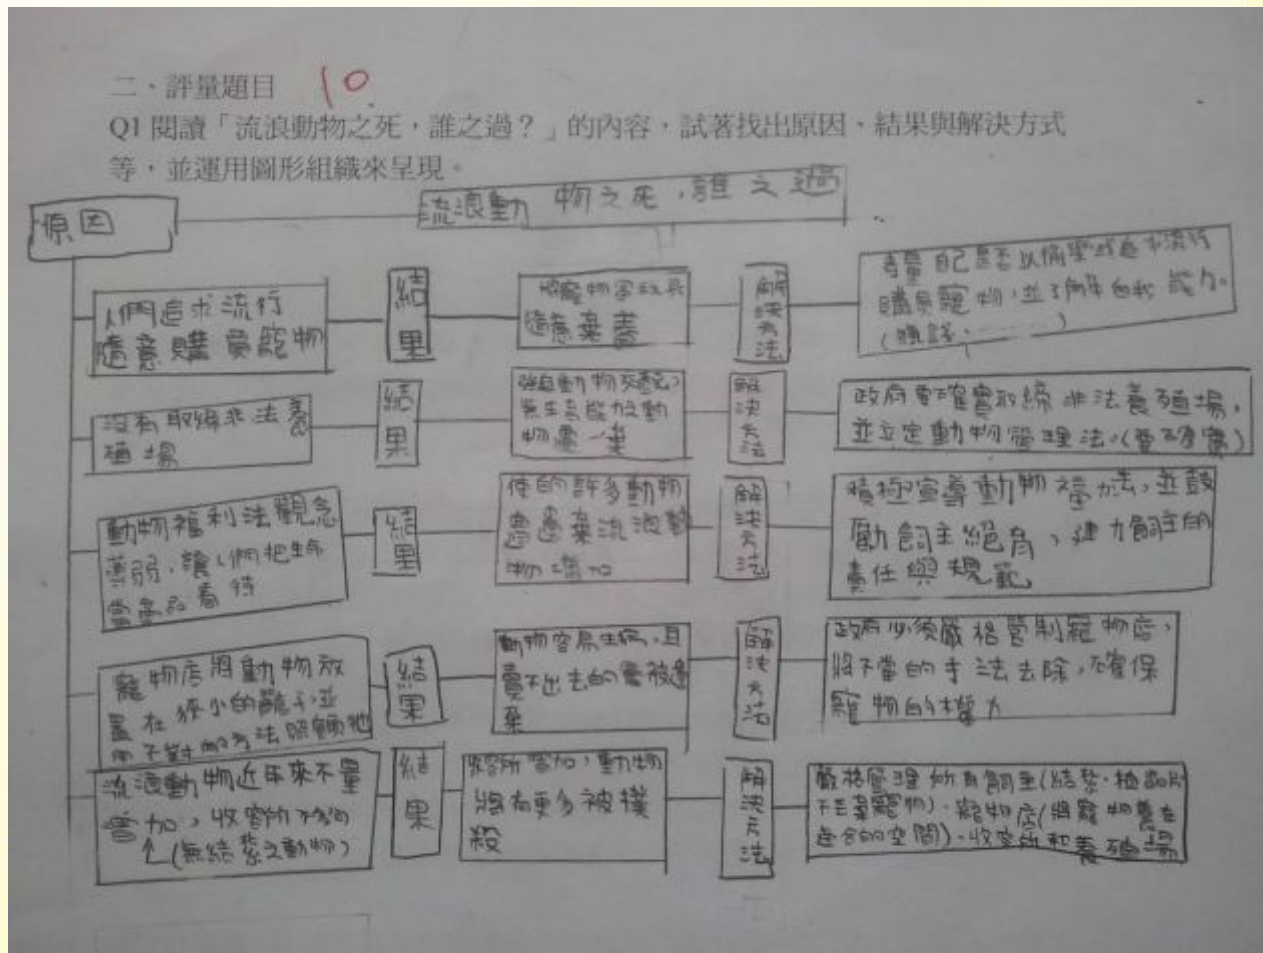 二、評量題目 10
Q1 閱讀「流浪動物之死，誰之過？」的內容，試著找出原因、結果與解決方式
等，並運用圖形組織來呈現。
流浪動物之死，誰之過
原因
人們追求流行
隨意購買寵物
結果
隨意棄養
解決方法
自己是否以
購買寵物，並了解自我能力。
沒有取締非法養
殖場
結果
強迫動物交配，
無生育能力之動
物遭
解決方法
政府要確實取締非法養殖場，
並立定動物管理法。(要確實)
動物福利法觀念
薄弱，讓人們把生命
當 看待
結果
使的許多動物
遭遺棄流浪動
物增加
解決方法
積極宣導動物 法，並鼓
勵飼主絕育，建力飼主的
責任與規範
寵物店將動物放
置在狹小的籠子，並
用不對的方法照顧牠
結果
動物容易生病，且
賣不出去的會被遺
棄
解決方法
政府必須嚴格管制寵物店，
將不當的手法去除，確保
寵物的權力
流浪動物近年來不斷
增加，收容所不夠
↑(無結紮之動物)
結果
容所 加，動物
將有更多被撲
殺
解決方法
嚴格管理所有飼主(結紮、植晶片
不丟棄寵物)、寵物店(將寵物養在
適合的空間)、收容所和養殖場